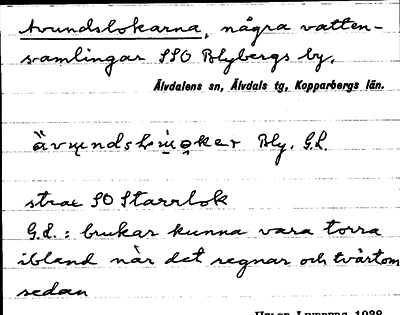 Avundslokarna, några vatten-
samlingar SSO Blybergs by.
Älvdalens sn, Älvdals tg, Kopparbergs län.
Bly. G.L.
strax SO Starrlok
G.L.: brukar kunna vara torra
ibland när det regnar och tvärtom
sedan
1938